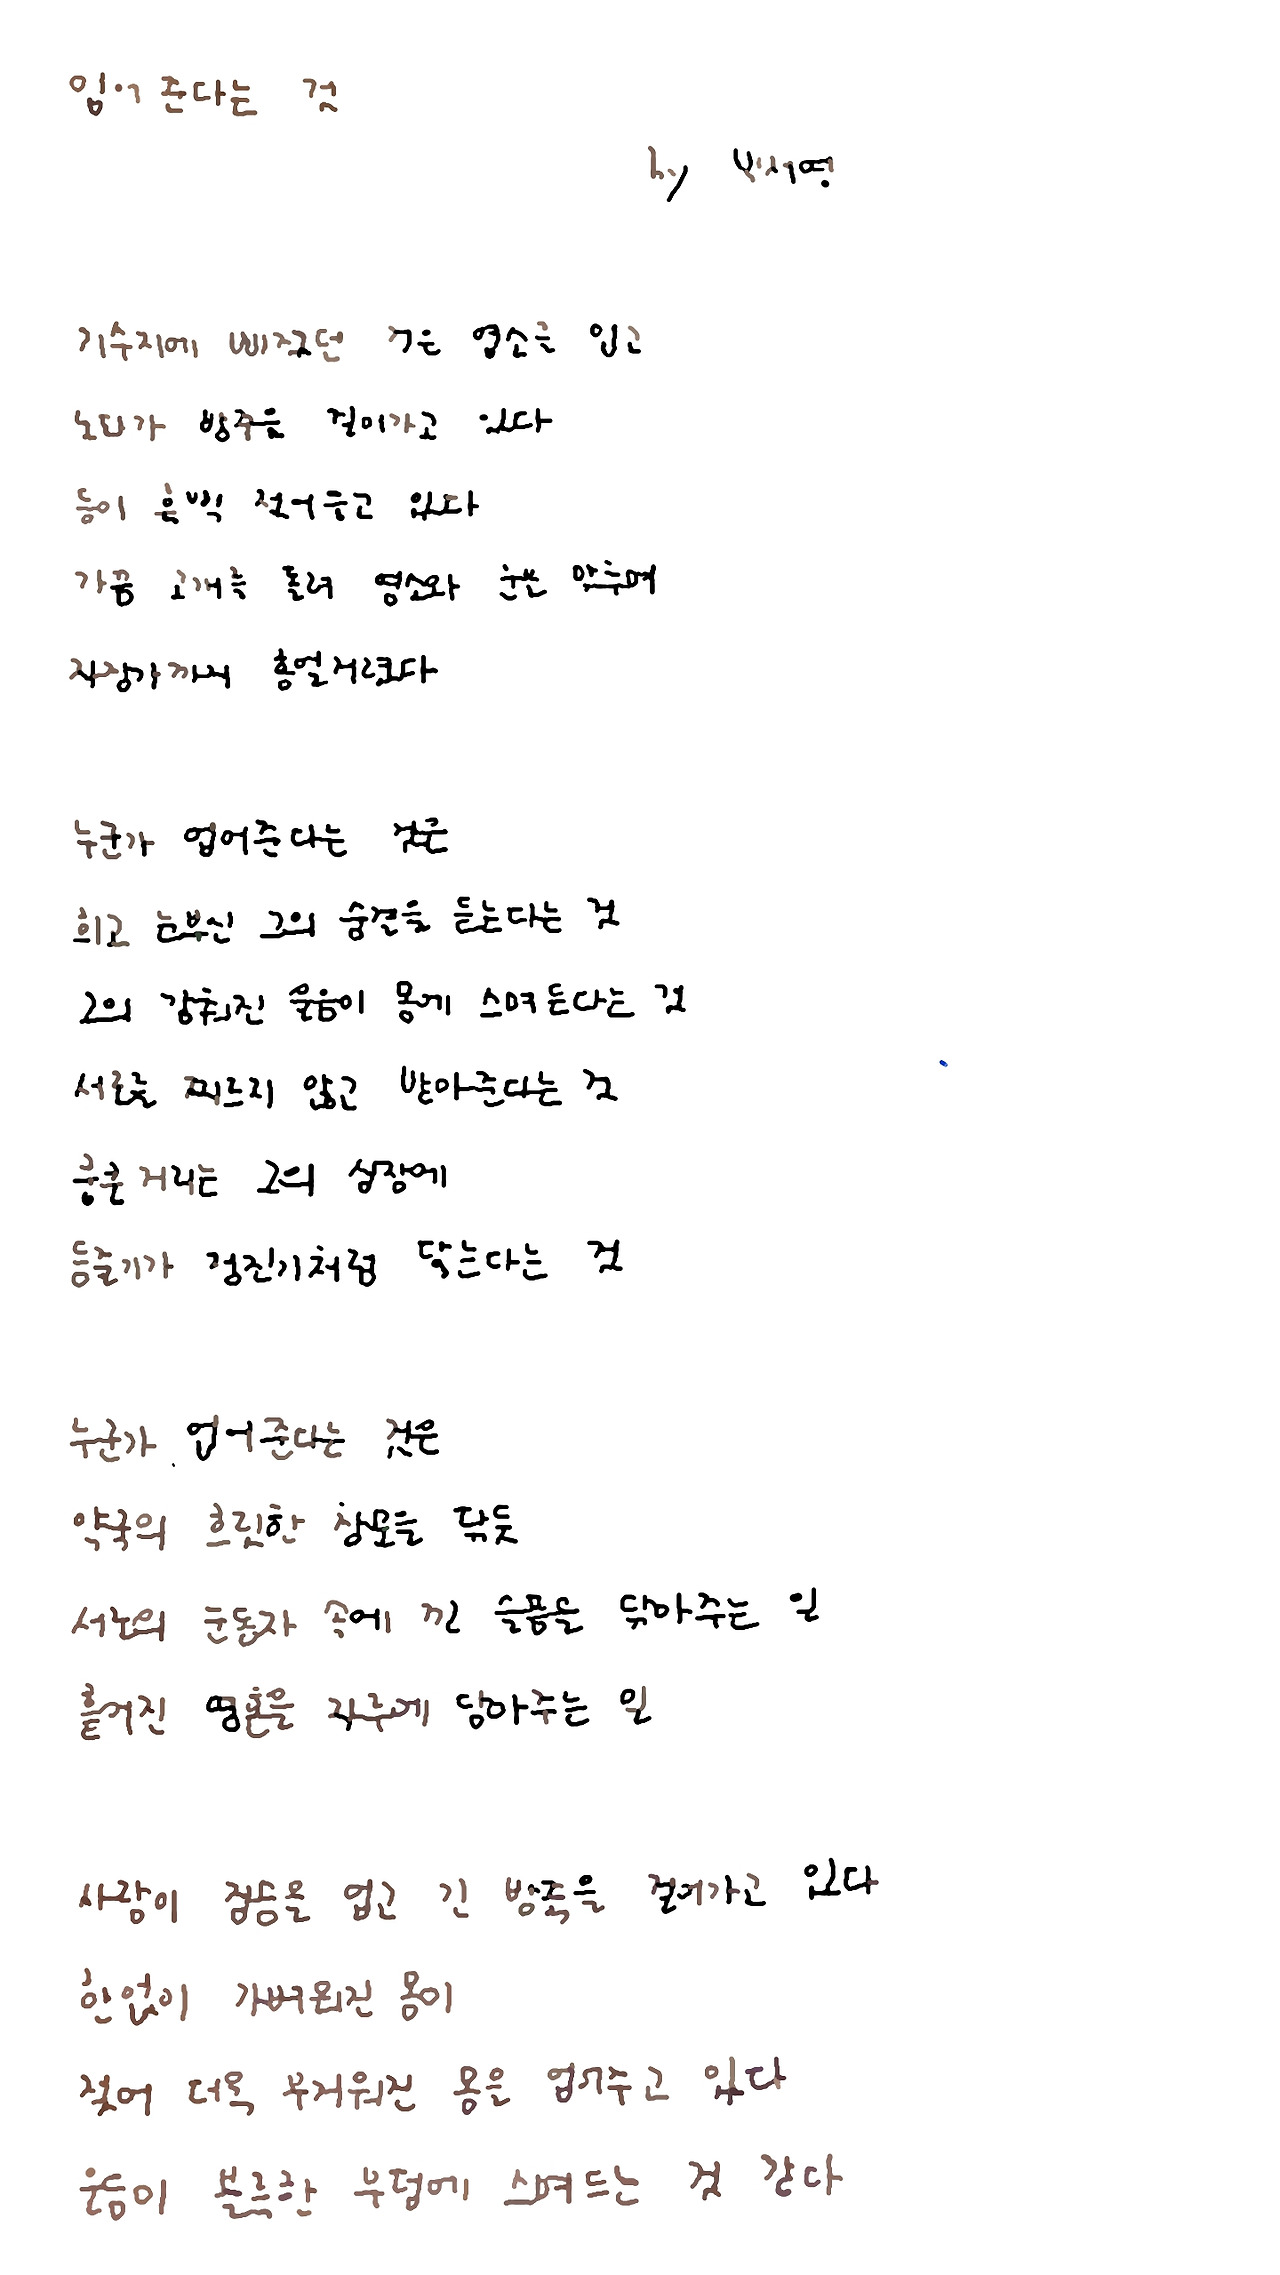 업어준다는 것
by 박서영
저수지에 빠졌던 검은 염소를 업고
노파가 방죽을 걸어가고 있다
등이 흠뻑 젖어들고 있다
가끔 고개를 돌려 염소와 눈을 맞추며
자장가까지 흥얼거렸다
누군가 업어준다는 것은
희고 눈부신 그의 숨결을 듣는다는 것
그의 감춰진 울음이 몸에 스며든다는 것
서로를 찌르지 않고 받아준다는 것
쿵쿵거리는 그의 심장에
등줄기가 청진기처럼 닿는다는 것
누군가 업어준다는 것은
약국의 흐릿한 창문을 닦듯
서로의 눈동자 속에 낀 슬픔을 닦아주는 일
흩어진 영혼을 자루에 담아주는 일
사람이 짐승을 업고 긴 방죽을 걸어가고 있다
한없이 가벼워진 몸이
젖어 더욱 무거워진 몸을 업어주고 있다
울음이 불룩한 무덤에 스며드는 것 같다